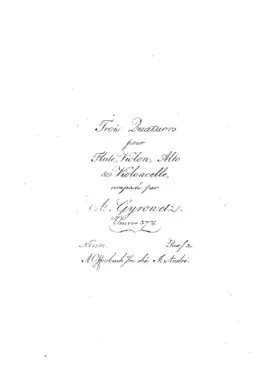 Trois Quatuors
pour
Flute, Violon, Alto
et Violoncelle,
composés par
A. Gyrowetz.
Oeuvre 37
No.
A Offenbach s/m chés J. André.